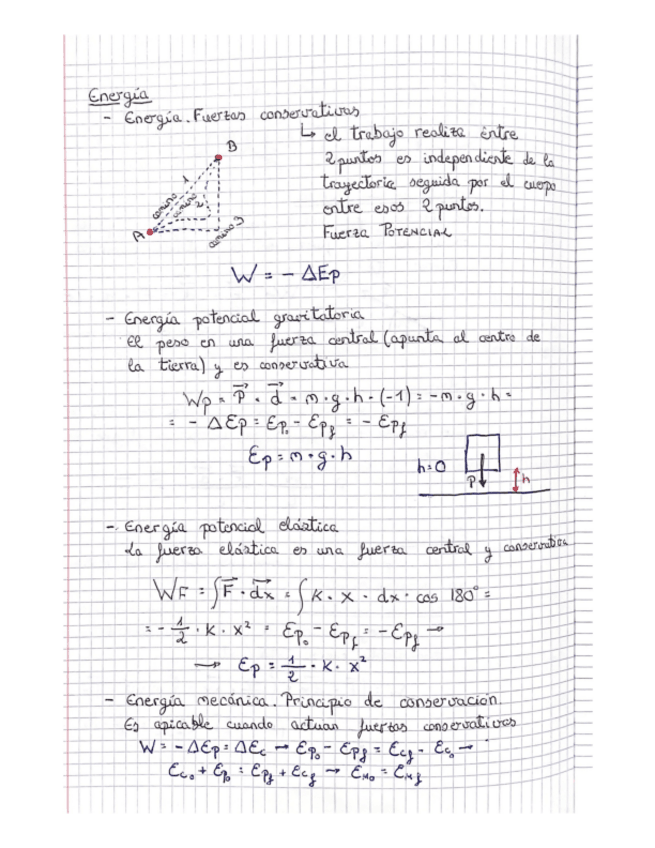 Energía
- Energía. Fuerzas conservativas
↳ el trabajo realiza entre
2 puntos es independiente de la
trayectoria seguida por el cuerpo
entre esos 2 puntos.
Fuerza POTENCIAL
B
camino 1
camino 2
camino 3
A
W = - ΔEp
- Energía potencial gravitatoria
el peso en una fuerza central (apunta al centro de
la tierra) y es conservativa
Wp = P⃗ · d⃗ = m · g · h · (-1) = -m · g · h =
= - ΔEp = Ep₀ - Epf = - Epf
Ep = m · g · h
h=0
P
h
- Energía potencial elástica
La fuerza elástica es una fuerza central y conservativa
WF = ∫F⃗ · dx⃗ = ∫K · x · dx · cos 180° =
= - 1/2 · K · x² = Ep₀ - Epf = - Epf →
→ Ep = 1/2 · K · x²
- Energía mecánica. Principio de conservación.
Es apicable cuando actuan fuerzas conservativas
W = - ΔEp = ΔEc → Ep₀ - Epf = Ecf - Ec₀ →
Ec₀ + Ep₀ = Epf + Ecf → EM₀ = EMf